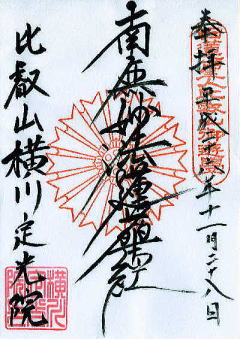 奉拝 平成二十六年十一月二十八日
南無妙法蓮華経
比叡山横川定光院